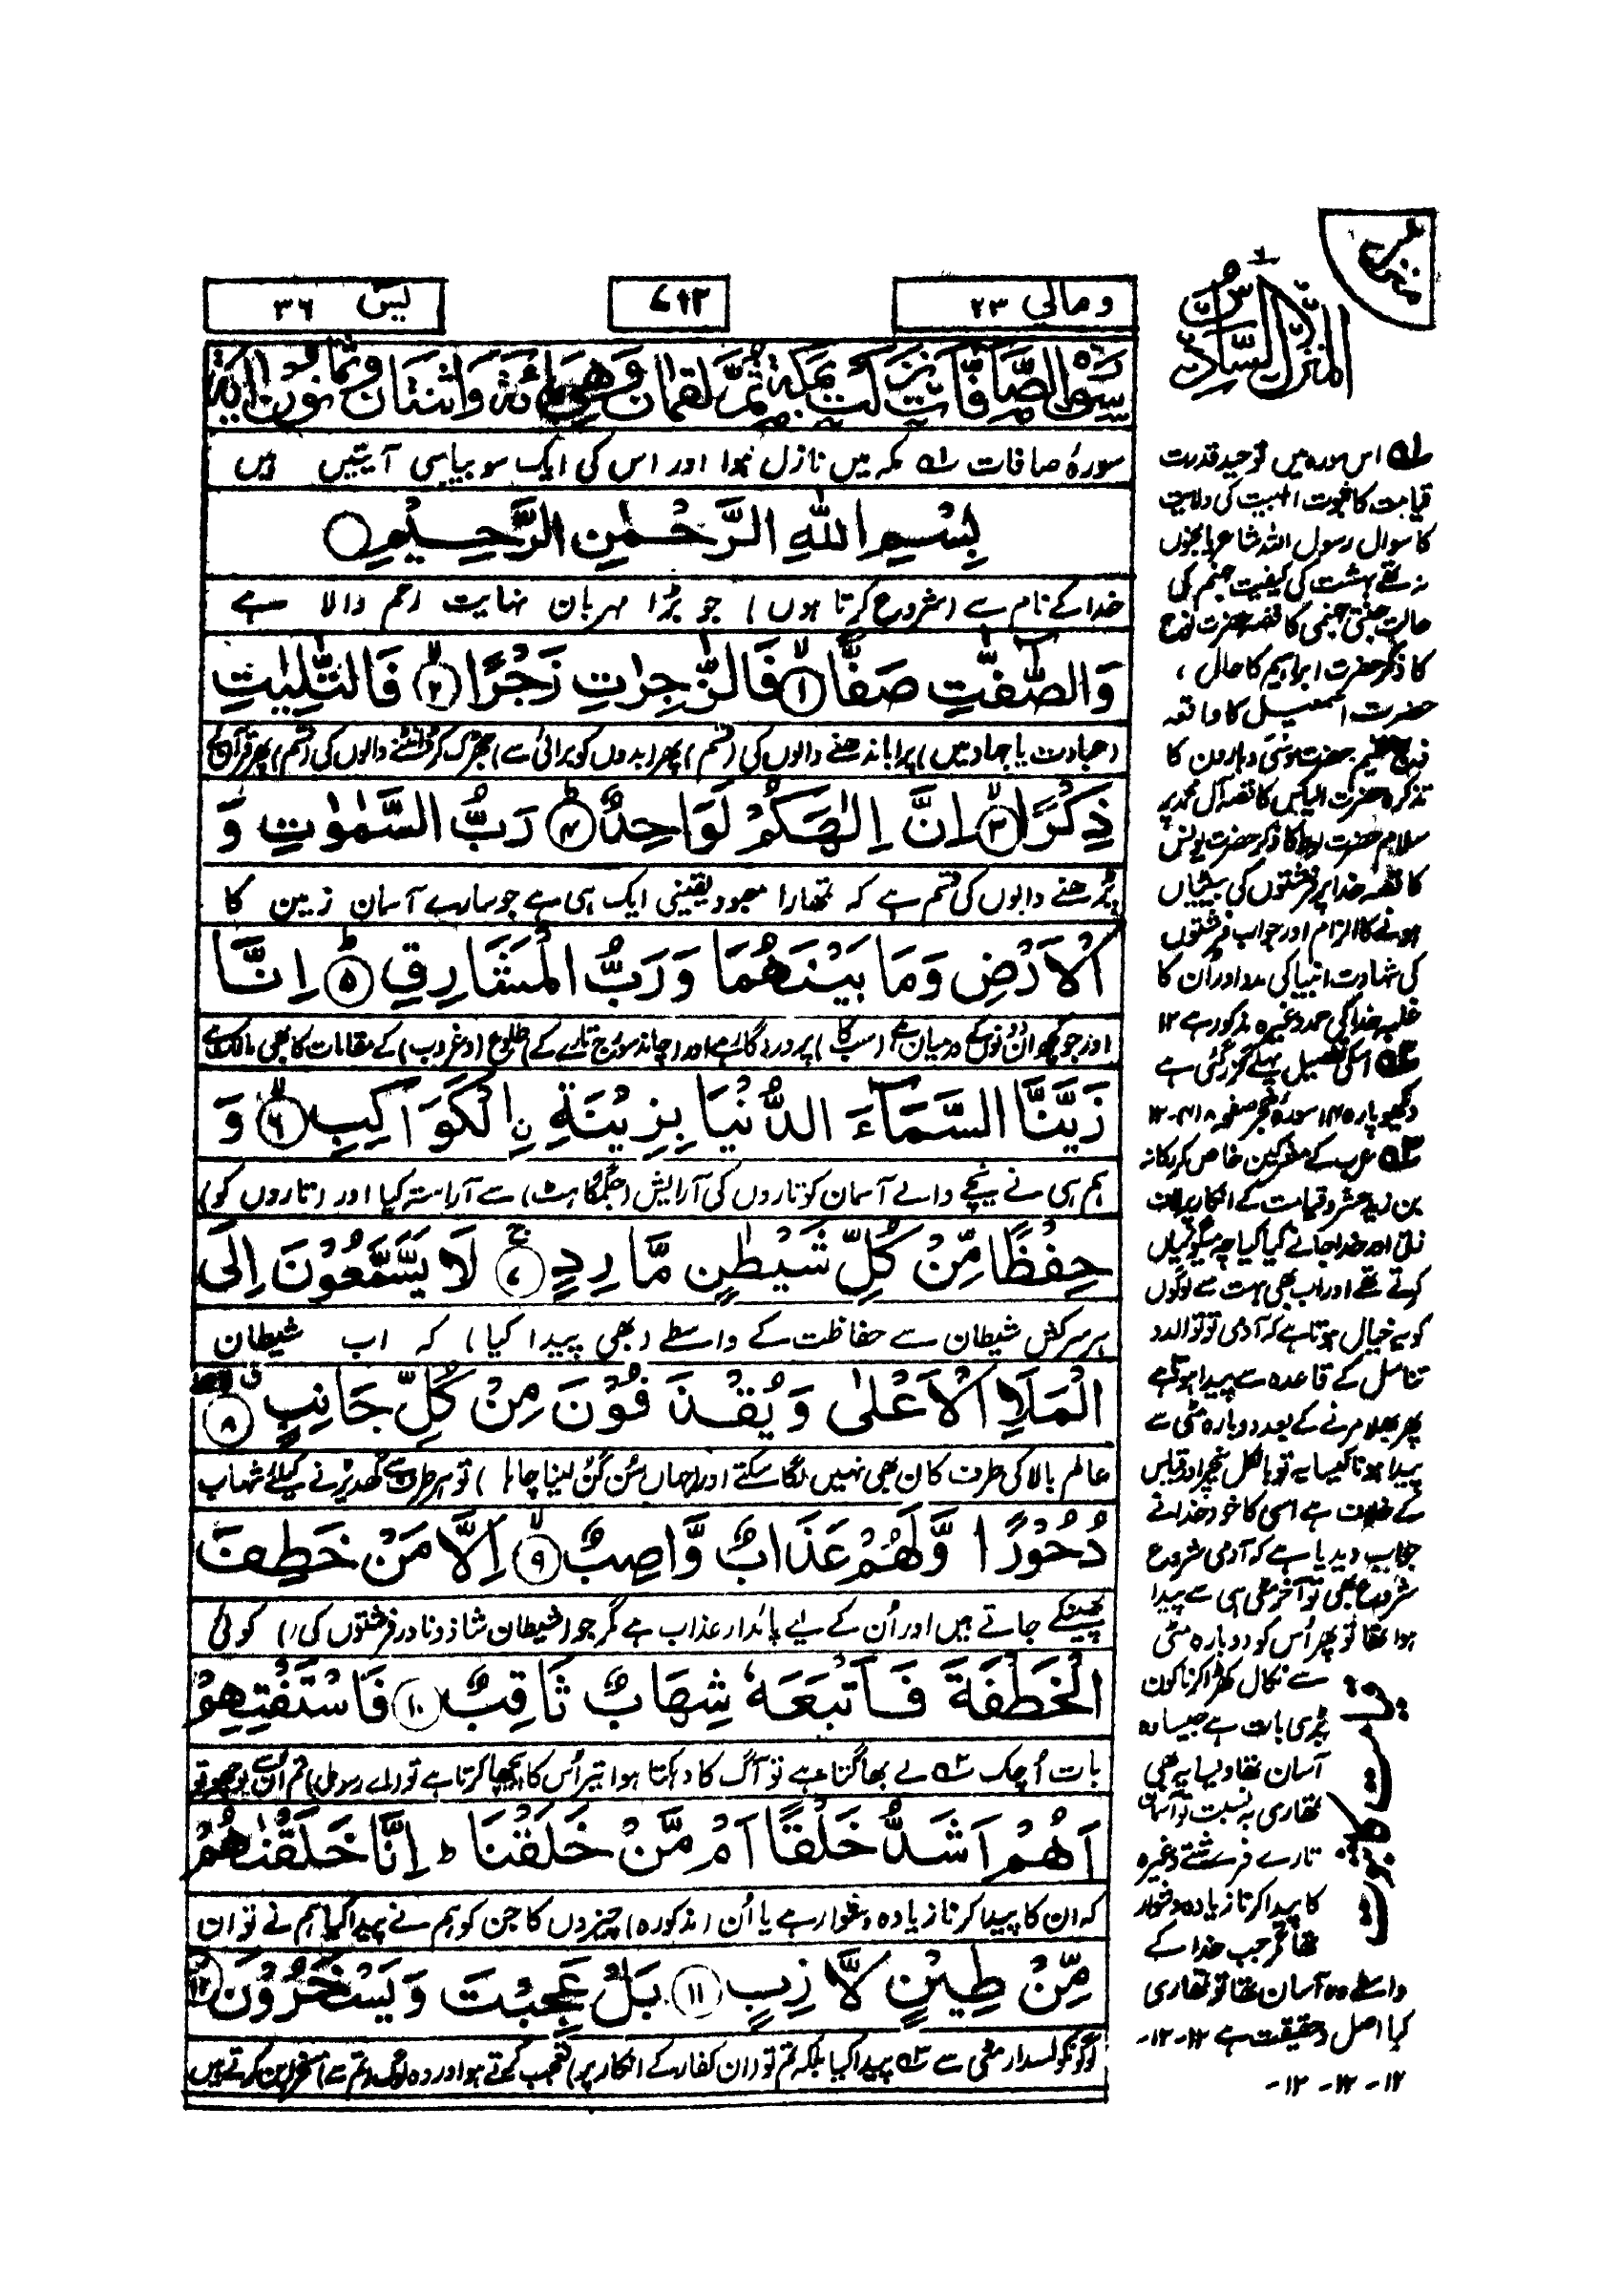 منزل
المنزل السادس
ومالی ۲۳
۷۱۲
یٰس ۳۶
سورة الصافات نزلت بمكة ثم لقمان وهي مائة واثنتان وثمانون اية
سورۂ صافات ۱؎ مکہ میں نازل ہوا اور اس کی ایک سو بیاسی آیتیں ہیں
بِسْمِ اللّٰهِ الرَّحْمٰنِ الرَّحِيْمِ
خدا کے نام سے (شروع کرتا ہوں) جو بڑا مہربان نہایت رحم والا ہے
وَالصّٰٓفّٰتِ صَفًّا ۱ فَالزّٰجِرٰتِ زَجْرًا ۲ فَالتّٰلِيٰتِ
(عبادت یا جہاد میں) پرا باندھنے والوں کی (قسم) پھر (بدوں کو برائی سے) جھڑک کر ڈانٹنے والوں کی (قسم) پھر قرآن کے
ذِكْرًا ۳ اِنَّ اِلٰهَكُمْ لَوَاحِدٌ ۴ رَبُّ السَّمٰوٰتِ وَ
پڑھنے والوں کی قسم ہے کہ تمھارا معبود یقینی ایک ہی ہے جو سارے آسمان زمین کا
الْاَرْضِ وَمَا بَيْنَهُمَا وَرَبُّ الْمَشَارِقِ ۵ اِنَّا
اور جو کچھ ان دونوں کے درمیان ہے (سب کا) پروردگار ہے اور (چاند سورج تارے کے) طلوع (و غروب) کے مقامات کا بھی مالک ہے
زَيَّنَّا السَّمَآءَ الدُّنْيَا بِزِيْنَةِ ِۨالْكَوَاكِبِ ۶ وَ
ہم ہی نے نیچے والے آسمان کو تاروں کی آرایش (جگمگاہٹ) سے آراستہ کیا اور (تاروں کو)
حِفْظًا مِّنْ كُلِّ شَيْطٰنٍ مَّارِدٍ ۷ لَا يَسَّمَّعُوْنَ اِلَى
ہر سرکش شیطان سے حفاظت کے واسطے (بھی پیدا کیا) کہ اب شیطان
الْمَلَاِ الْاَعْلٰى وَيُقْذَفُوْنَ مِنْ كُلِّ جَانِبٍ ۸
عالم بالا کی طرف کان بھی نہیں لگا سکتے اور (جہاں سُن گن لینا چاہا) تو ہر طرف سے کھدیڑنے کیلئے شہاب
دُحُوْرًا وَّلَهُمْ عَذَابٌ وَّاصِبٌ ۹ اِلَّا مَنْ خَطِفَ
پھینکے جاتے ہیں اور اُن کے لیے پائدار عذاب ہے مگر جو (شیطان شاذ و نادر فرشتوں کی) کوئی
الْخَطْفَةَ فَاَتْبَعَهٗ شِهَابٌ ثَاقِبٌ ۱۰ فَاسْتَفْتِهِمْ
بات اُچک ۲؎ لے بھاگتا ہے تو آگ کا دہکتا ہوا تیر اُس کا پیچھا کرتا ہے تو (اے رسول) تم ان سے پوچھو تو
اَهُمْ اَشَدُّ خَلْقًا اَمْ مَّنْ خَلَقْنَا ؕ اِنَّا خَلَقْنٰهُمْ
کہ ان کا پیدا کرنا زیادہ دشوار ہے یا اُن (مذکورہ) چیزوں کا جن کو ہم نے پیدا کیا ہم نے تو ان
مِّنْ طِيْنٍ لَّازِبٍ ۱۱ بَلْ عَجِبْتَ وَيَسْخَرُوْنَ ۱۲
لوگوں کو لسدار مٹی سے ۳؎ پیدا کیا بلکہ تم تو (ان کفار کے انکار پر) تعجب کرتے ہو اور وہ لوگ (تم سے) مسخراپن کرتے ہیں
۱؎ اس سورہ میں توحید قدرت
قیامت کا ثبوت اہلبیت کی ولایت
کا سوال رسول اللہ شاعر یا مجنوں
نہ تھے بہشت کی کیفیت جہنم کی
حالت جنتی جہنمی کا قصہ حضرت نوح
کا ذکر حضرت ابراہیم کا حال ،
حضرت اسمعیل کا واقعہ
ذبح عظیم حضرت موسٰی و ہارون کا
تذکرہ حضرت الیاس کا قصہ آل محمد پر
سلام حضرت لوط کا ذکر حضرت یونس
کا قصہ خدا پر فرشتوں کی بیٹیاں
ہونے کا الزام اور جواب فرشتوں
کی شہادت انبیا کی مدد اور اُن کا
غلبہ خدا کی حمد وغیرہ مذکور ہے ۱۲
۲؎ اسکی تفصیل پہلے گزر گئی ہے
دیکھو پارہ ۱۴ سورۂ حجر صفحہ ۴۱۸-۱۲
۳؎ عرب کے مشرکین خاص کر رکانہ
بن زید حشر و قیامت کے انکار پر
اور خدا جانے کیا کیا چہ میگوئیاں
کرتے تھے اور اب بھی بہت سے لوگوں
کو یہ خیال ہوتا ہے کہ آدمی تو توالد و
تناسل کے قاعدہ سے پیدا ہوتا ہے
پھر بھلا مرنے کے بعد دوبارہ مٹی سے
پیدا ہونا کیسا یہ تو بالکل نیچر اور قیاس
کے خلاف ہے اسی کا خود خدا نے
جواب دیدیا ہے کہ آدمی شروع
شروع بھی تو آخر مٹی ہی سے پیدا
ہوا تھا تو پھر اُس کو دوبارہ مٹی
سے نکال کھڑا کرنا کون
بڑی بات ہے جیسا وہ
آسان تھا ویسا یہ بھی
تمھاری بہ نسبت تو آسمان
تارے فرشتے وغیرہ
کا پیدا کرنا زیادہ دشوار
تھا مگر جب خدا کے
واسطے وہ آسان تھا تو تمھاری
کیا اصل و حقیقت ہے ۱۲-۱۲-
۱۲-۱۲-۱۲-